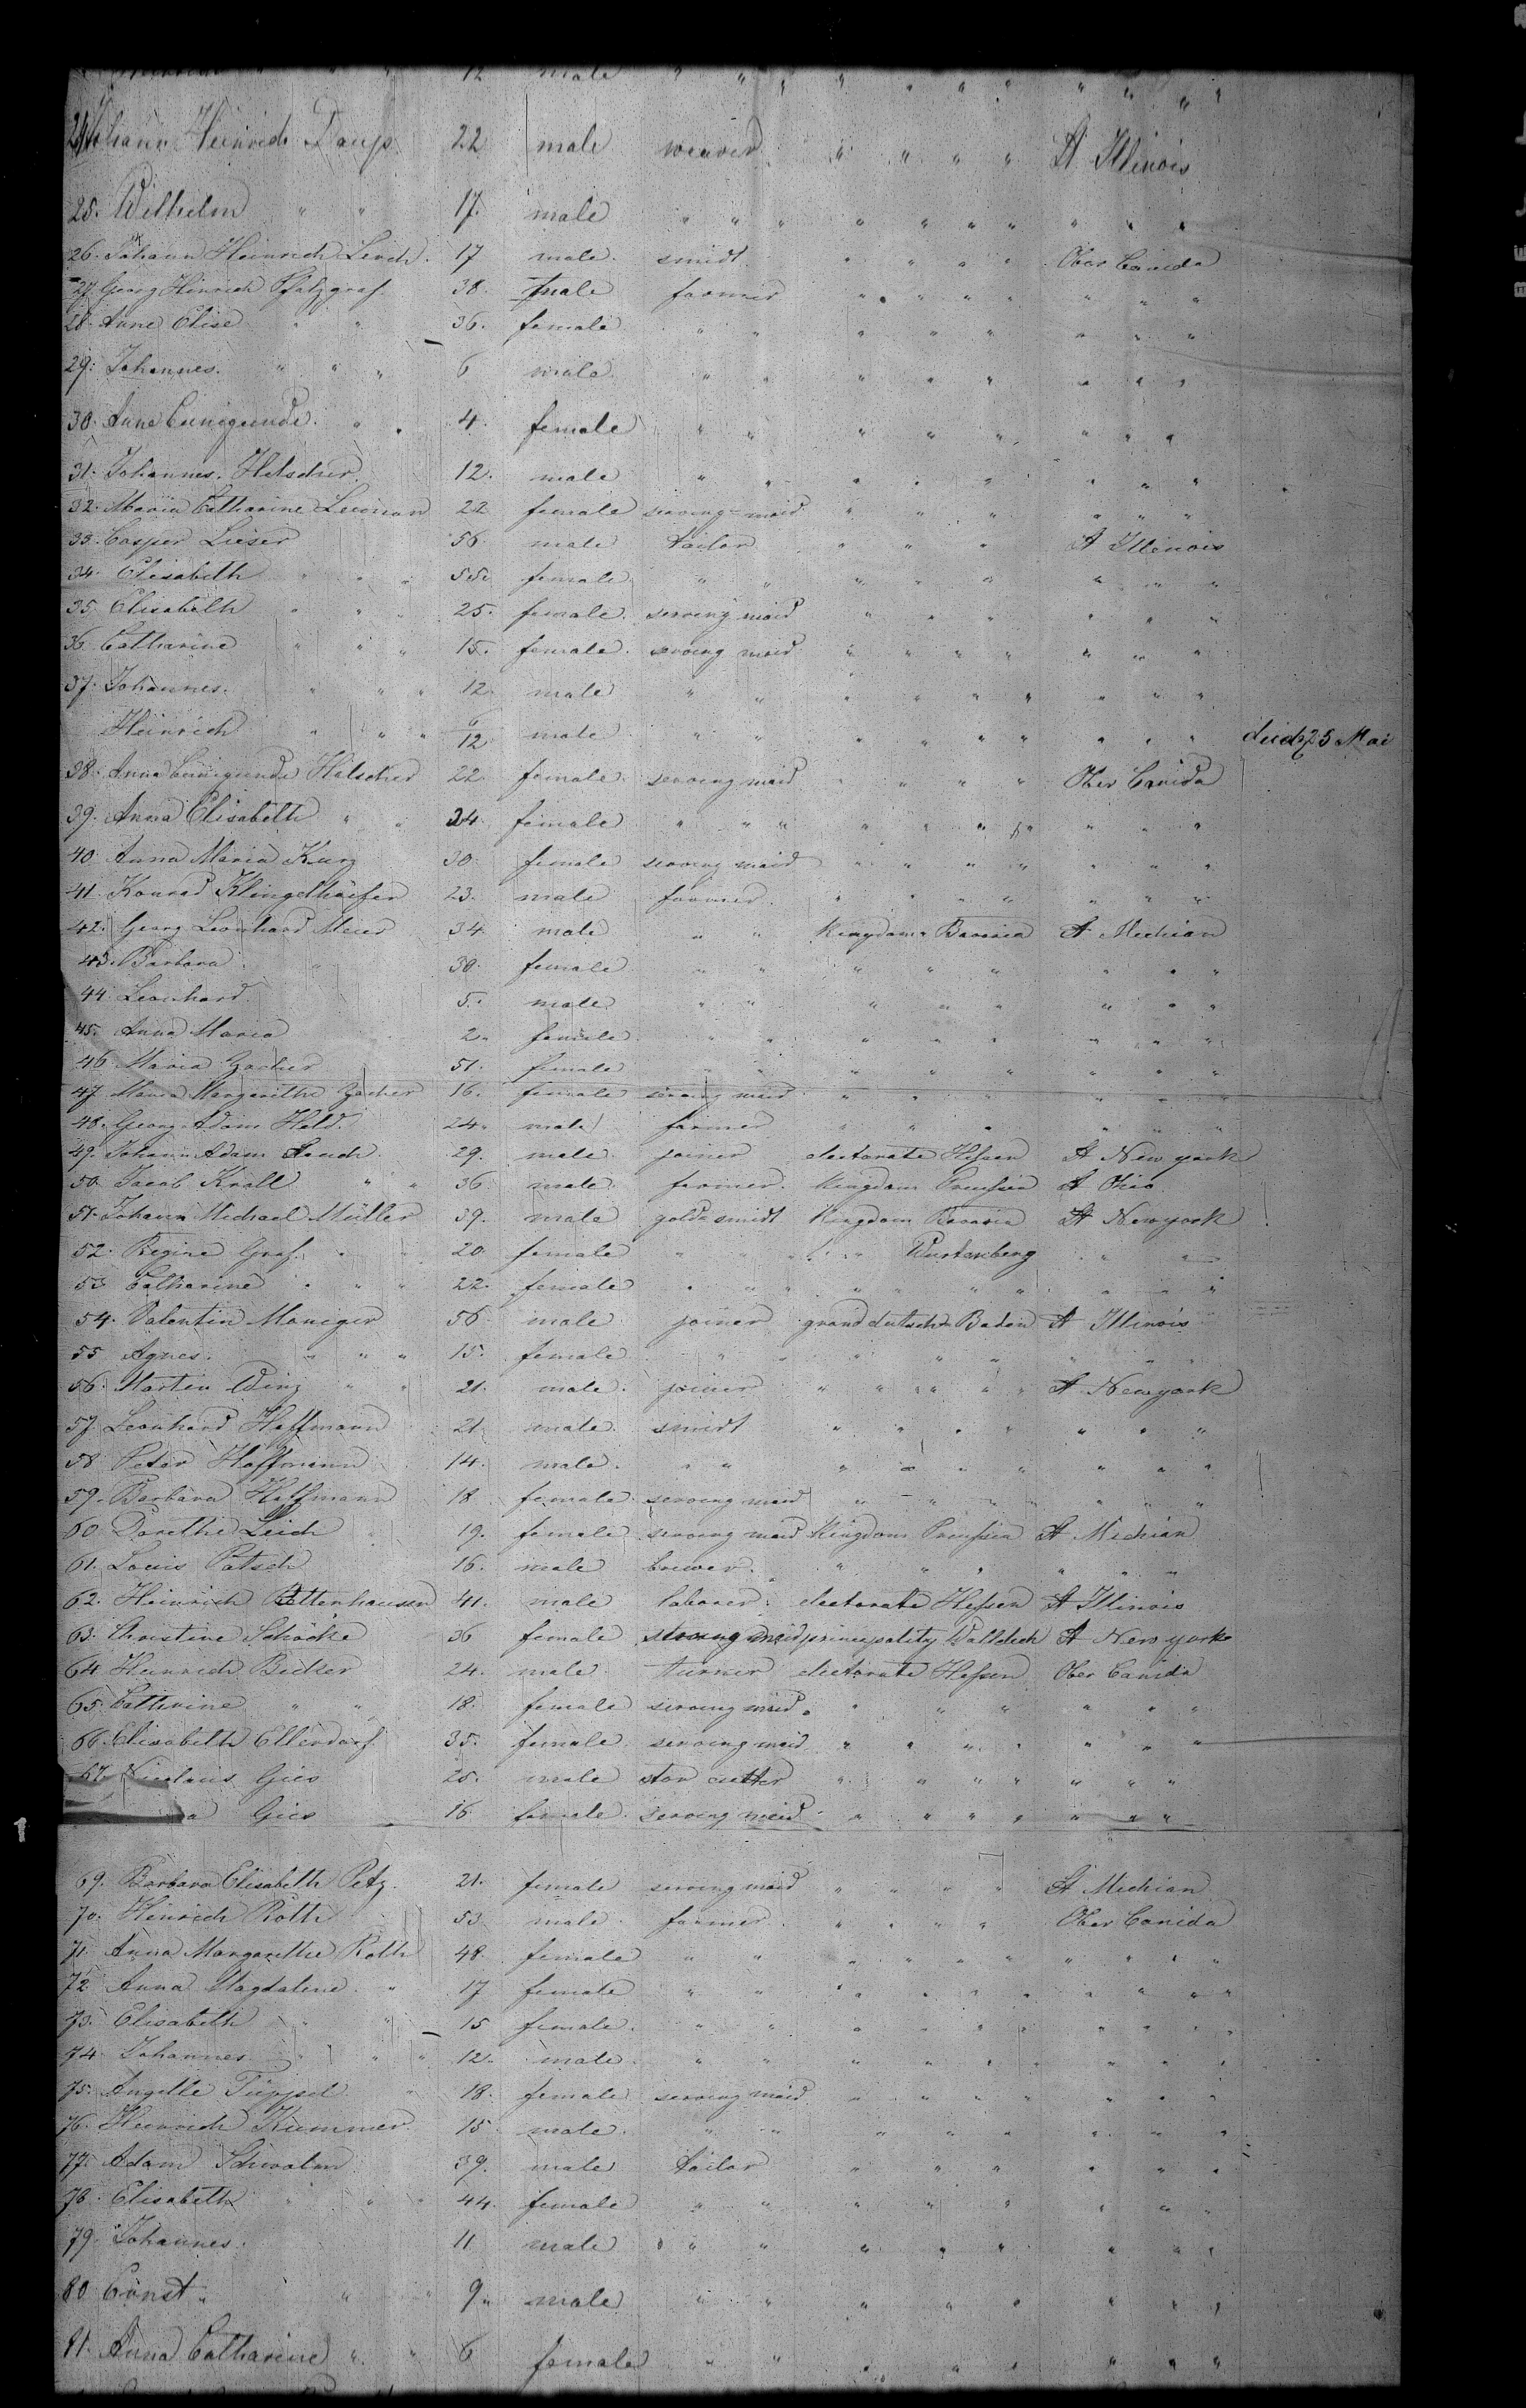 12 male " " " " " " " " " "
24 Johann Heinrich Daups 22 male weaver " " " " St Illinois
25. Wilhelm " " 17. male " " " " " " " " " "
26. Johann Heinrich Lerch. 17 male. smidt " " " " Ober Canida
27. Georg Hinrich Pfalzgraf. 38. male farmer " " " " " " "
28. Anne Elise " " 36. female " " " " " " " "
29. Johannes. " " " 6 male " " " " " " " "
30. Anne Cunigunde. " " 4. female " " " " " " " "
31. Johannes. Helscher. 12. male " " " " " " " "
32. Maria Catharine 22 female serving-maid " " " " " "
33. Casper Lieser 56. male tailor " " " St Illinois
34. Elisabeth " " " 55. female. " " " " " " " "
35. Elisabeth " " " 25. female. serving maid " " " " " "
36. Catharine " " " 15. female. serving maid " " " " " " "
37. Johannes. " " " 12. male " " " " " " " " "
Heinrich " " " 6/12 male " " " " " " " " " died 25 Mai
38. Anna Cunigunde Helscher 22. female. serving maid " " " " Ober Canida
39. Anna Elisabeth " " 24. female " " " " " " " " " "
40 Anna Maria Kurz 30. female serving maid " " " " " " "
41. Konrad Klingelhöefer 23. male farmer. " " " " " " "
42. Georg Leonhard Meier 34. male " " Kingdom Bavaria St Michian
43. Barbara " 30. female " " " " " " " "
44. Leonhard. 5. male " " " " " " " "
45. Anna Maria 2. female " " " " " " " "
46. Maria Zacher 51. female " " " " " " " "
47 Maria Margarithe Zacher 16. female serving maid " " " " " "
48. Georg Adam Held. 24. male farmer " " " " " "
49. Johann Adam 29. male. joiner electorate Hessen St New york
50. Jacob Krall " " 36. male. farmer. Kingdom Preussen St Ohio.
51. Johann Michael Müller 39. male goldsmidt Kingdom Bavaria St Newyork
52. Regine Graf. " " 20. female " " " " Wurtenberg " "
53. Catharine " " " 22. female " " " " " " " " "
54. Valentin Moniger 56. male joiner grand dutsch Baden St Illinois
55 Agnes. " " " 15. female " " " " " " " "
56. Marten Winz " " 21. male. joiner " " " " " St Newyork
57. Leonhard Hoffmann 21. male. smidt " " " " " " "
58 Peter Hoffmann 14. male. " " " " " " " " "
59. Barbara Hoffmann 18 female. serving maid " " " " " " "
60 Dorethe Leich 19. female serving maid Kingdom Preussen St Michian
61. Louis Patsch 16. male brewer. " " " " " "
62. Heinrich Rettenhausen 41. male laborer. electorate Hessen St Illinois
63. Christine Schröke 36 female serving maid principality Walldeck St New york
64 Heinrich Becker 24. male. turner electorate Hessen Ober Canida
65. Catherine " " 18. female serving maid. " " " " " "
66. Elisabeth Ellendorf. 35. female. serving maid " " " " " " "
67. Nicolaus Gies 25. male ston cutter " " " " " " "
a Gies 16 female. serving maid " " " " " " "
69. Barbara Elisabeth Petz. 21. female serving maid " " " " St Michian
70. Heinrich Roth 53. male. farmer. " " " " Ober Canida
71. Anna Margarethe Roth 48. female " " " " " " " " " "
72 Anna Magdalene " 17 female " " " " " " " " " "
73. Elisabeth " " 15 female. " " " " " " " " " "
74 Johannes " " " 12. male. " " " " " " " " "
75. Angelle " 18. female serving maid " " " " " " "
76. Heinrich Kummer. 15. male. " " " " " " " "
77. Adam Schwalm 39. male tailor " " " " " "
78. Elisabeth " " " 44. female " " " " " " " "
79. Johannes. 11 male " " " " " " " " "
80 Ernst " " " 9. male " " " " " " " "
81. Anna Catharine " " 6 female " " " " " " " "